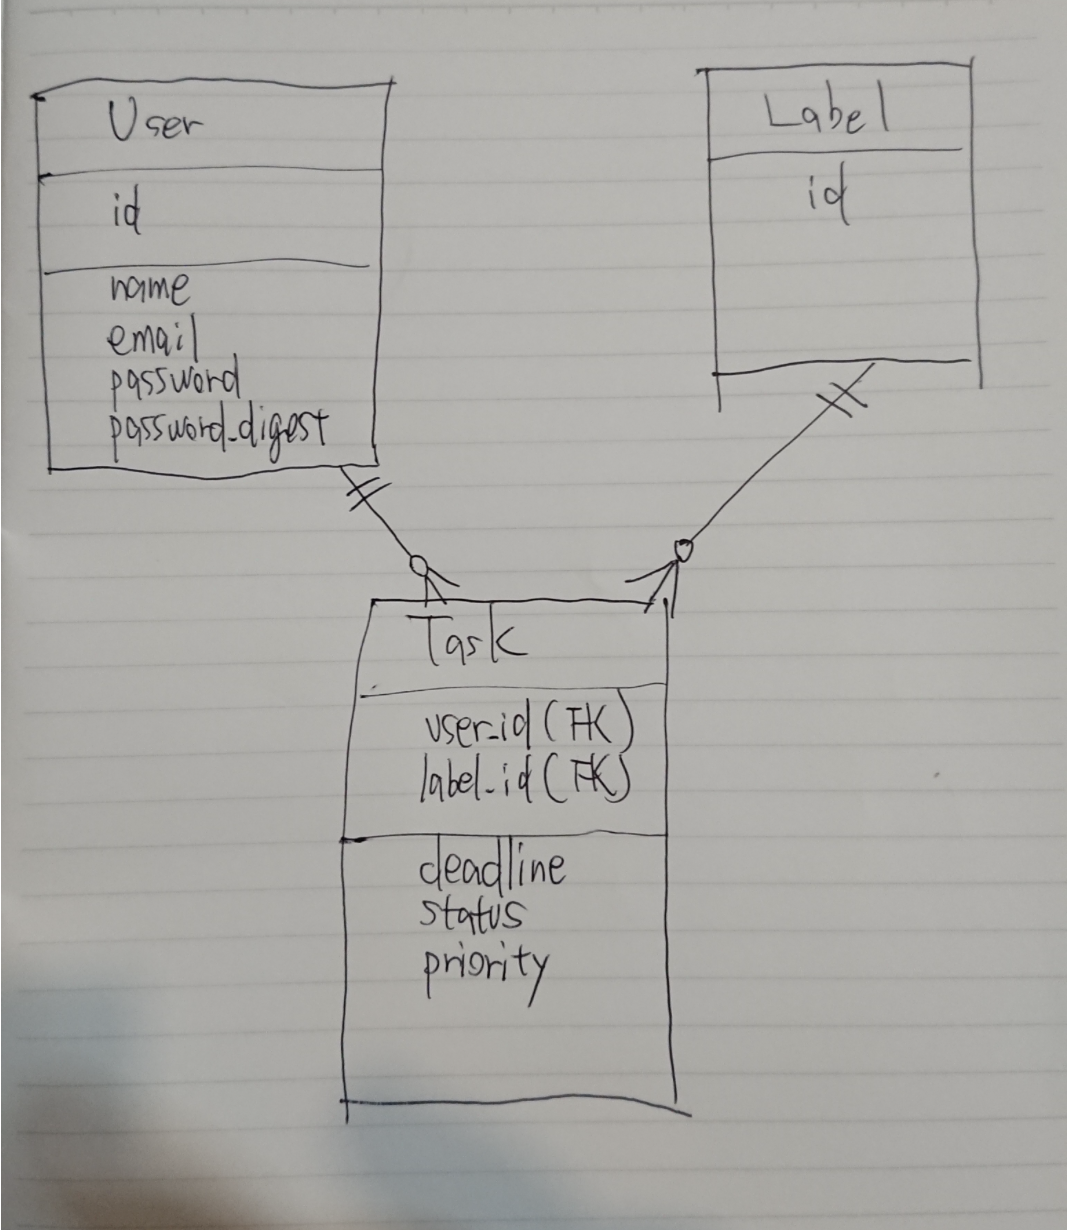 User
id
name
email
password
password_digest
Label
id
Task
user_id (FK)
label_id (FK)
deadline
status
priority